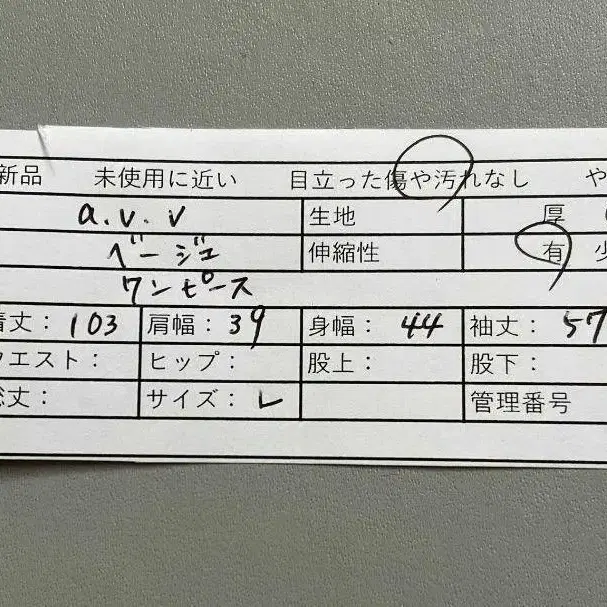 新品 未使用に近い 目立った傷や汚れなし や
a.v.v 生地 厚
ベージュ 伸縮性 有 少
ワンピース
着丈：103 肩幅：39 身幅：44 袖丈：57
ウエスト： ヒップ： 股上： 股下：
総丈： サイズ：L 管理番号